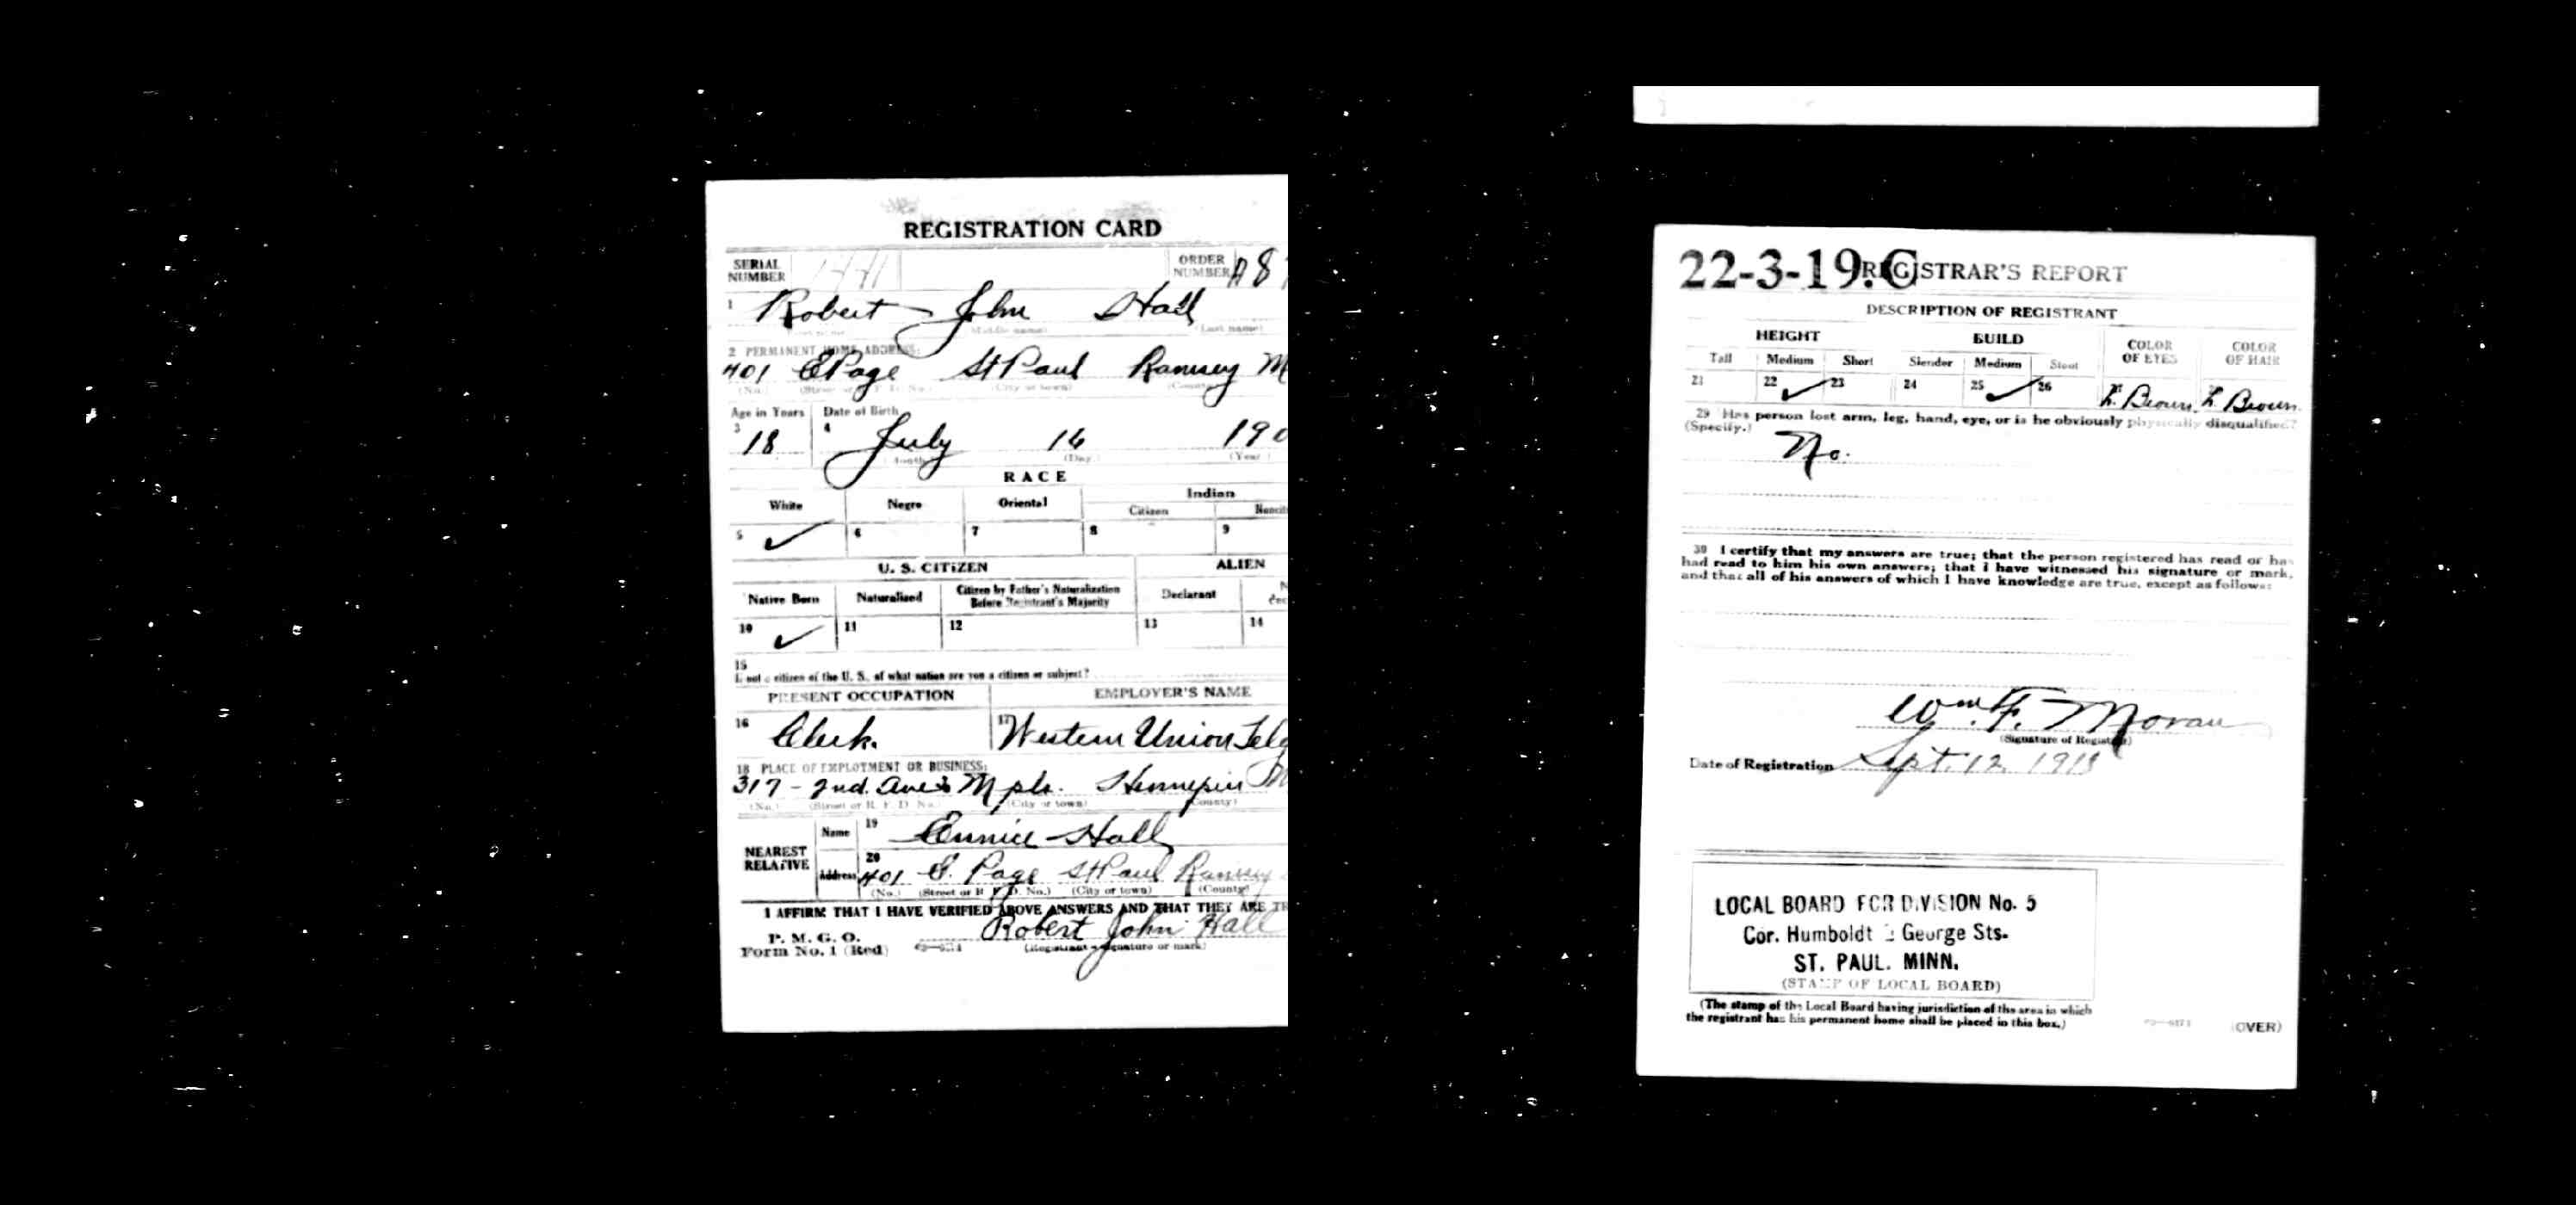 REGISTRATION CARD
SERIAL NUMBER ORDER NUMBER A8
1 Robert John Hall
(Middle name) (Last name)
2 PERMANENT HOME ADDRESS:
401 E Page St Paul Ramsey M
(No.) (City or town)
Age in Years Date of Birth
3 18 4 July 16 190
(Month) (Day) (Year)
RACE
White Negro Oriental Indian
Citizen Noncit
5 ✓ 6 7 8 9
U. S. CITIZEN ALIEN
Native Born Naturalized Citizen by Father's Naturalization Before Registrant's Majority Declarant
10 ✓ 11 12 13 14
15
If not a citizen of the U. S., of what nation are you a citizen or subject?
PRESENT OCCUPATION EMPLOYER'S NAME
16 Clerk. 17 Western Union Tel
18 PLACE OF EMPLOYMENT OR BUSINESS:
317 - 2nd. Ave S Mpls. Hennepin M
(No.) (Street or R. F. D. No.) (City or town) (County)
NEAREST RELATIVE Name 19 Hall
Address 20 401 E. Page St Paul Ramsey
(No.) (Street or R. F. D. No.) (City or town) (County)
I AFFIRM THAT I HAVE VERIFIED ABOVE ANSWERS AND THAT THEY ARE TR
P. M. G. O.
Form No. 1 (Red) Robert John Hall
(Registrant's signature or mark)
22-3-19. C REGISTRAR'S REPORT
DESCRIPTION OF REGISTRANT
HEIGHT BUILD COLOR OF EYES COLOR OF HAIR
Tall Medium Short Slender Medium Stout
21 22 ✓ 23 24 25 ✓ 26 Brown Brown
29 Has person lost arm, leg, hand, eye, or is he obviously physically disqualified?
(Specify.) No.
30 I certify that my answers are true; that the person registered has read or has
had read to him his own answers; that I have witnessed his signature or mark,
and that all of his answers of which I have knowledge are true, except as follows:
Wm. F. Moran
(Signature of Registrar)
Date of Registration Sept. 12 1918
LOCAL BOARD FOR DIVISION No. 5
Cor. Humboldt & George Sts.
ST. PAUL. MINN.
(STAMP OF LOCAL BOARD)
(The stamp of the Local Board having jurisdiction of the area in which
the registrant has his permanent home shall be placed in this box.)
(OVER)